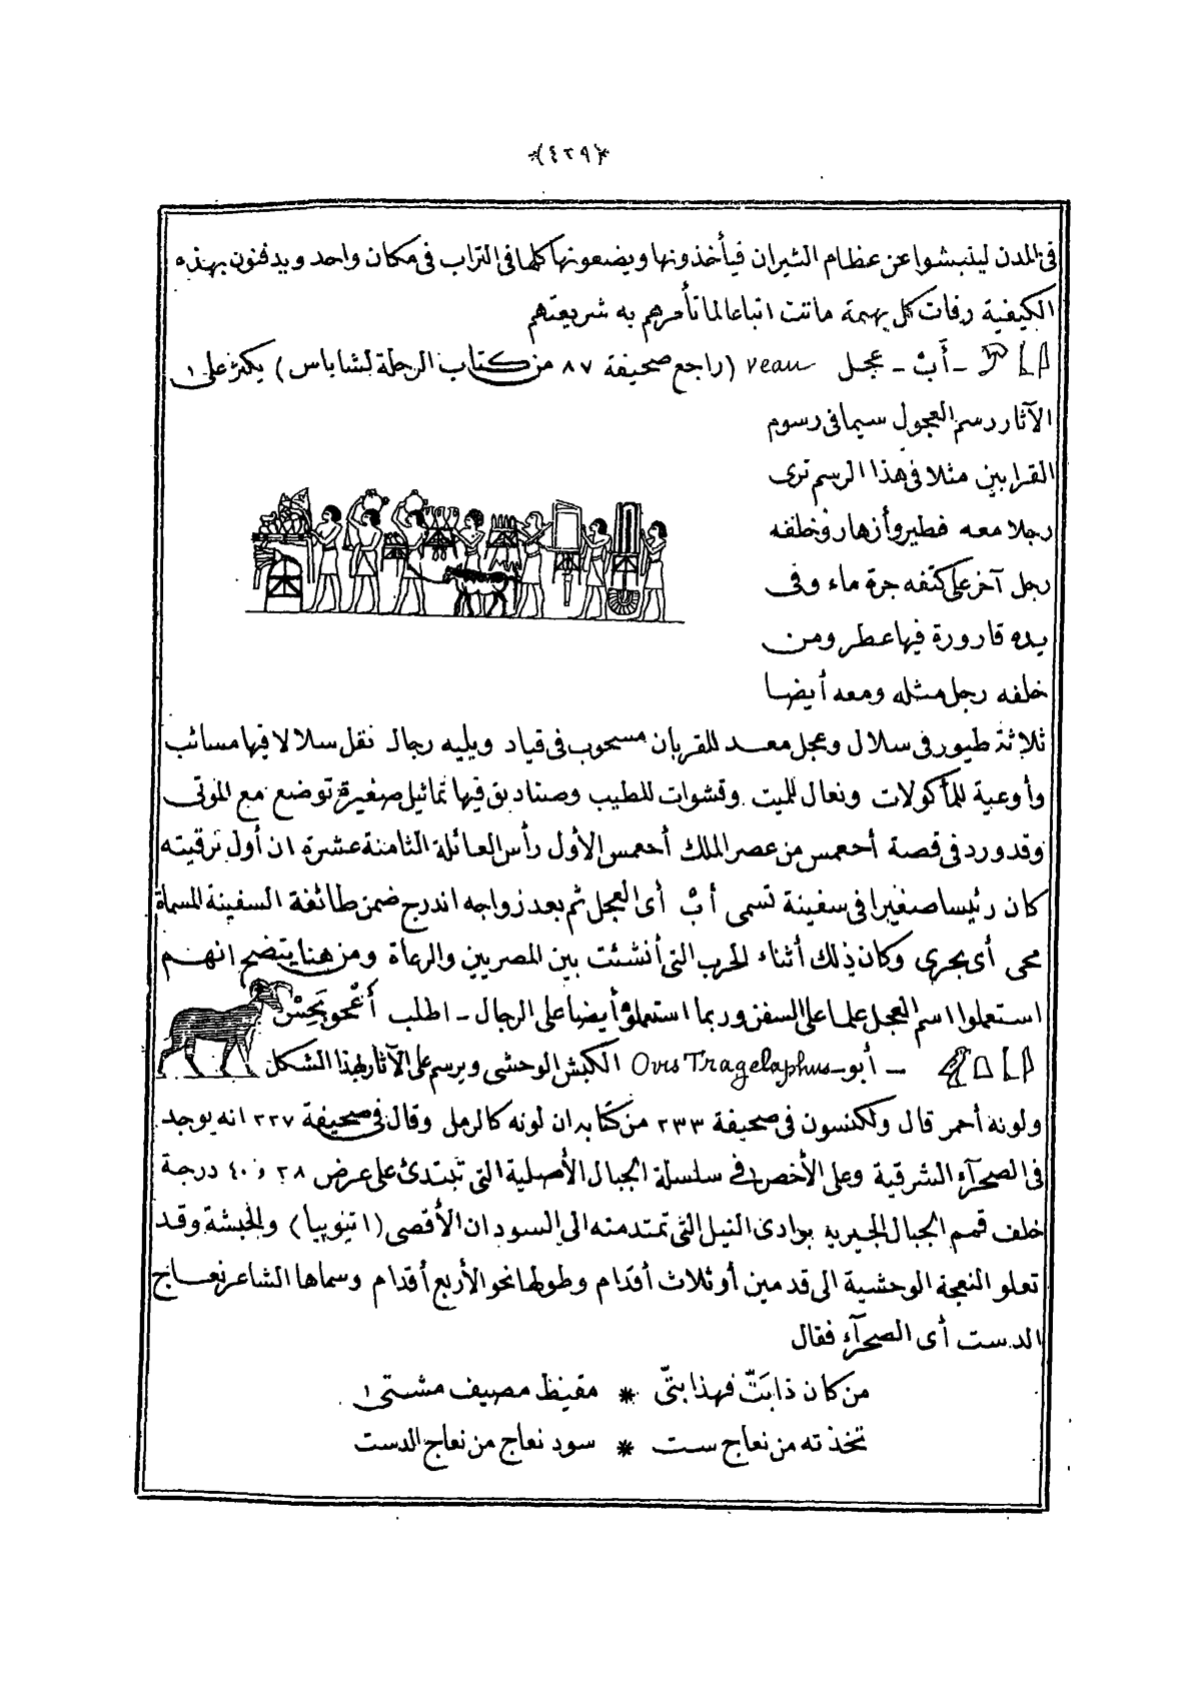 ﴿٤٢٩﴾
فى المدن لينبشوا عن عظام الثيران فيأخذونها ويضعونها كلها فى التراب فى مكان واحد ويدفنون بهذه
الكيفية رفات كل بهيمة ماتت اتباعا لما تأمرهم به شريعتهم
ـ أَبْ ـ عجل veau (راجع صحيفة ٨٧ من كتاب الرحلة لشاباس) يكثر على
الآثار رسم العجول سيما فى رسوم
القرابين مثلا فى هذا الرسم ترى
رجلا معه فطير وأزهار وخلفه
رجل آخر على كتفه جرة ماء وفى
يده قارورة فيها عطر ومن
خلفه رجل مثله ومعه أيضا
ثلاثة طيور فى سلال وعجل معد للقربان مسحوب فى قياد ويليه رجال نقل سلالا فيها مسائب
وأوعية للمأكولات ونعال للميت وقشوات للطيب وصناديق فيها تماثيل صغيرة توضع مع الموتى
وقد ورد فى قصة أحعمس من عصر الملك أحعمس الأول رأس العائلة الثامنة عشرة ان أول ترقيته
كان رئيسا صغيرا فى سفينة تسمى أبْ أى العجل ثم بعد زواجه اندرج ضمن طائفة السفينة المسماة
محى أى بحرى وكان ذلك أثناء الحرب التى أنشئت بين المصريين والرعاة ومن هنا يتضح انهم
استعملوا اسم العجل علما على السفن وربما استعملوه أيضا على الرجال ـ اطلب
ـ أبو ـ Ovis Tragelaphus الكبش الوحشى ويرسم على الآثار بهذا الشكل
ولونه أحمر قال ولكنسون فى صحيفة ٢٣٣ من كتابه ان لونه كالرمل وقال فى صحيفة ٢٢٧ انه يوجد
فى الصحرآء الشرقية وعلى الأخص فى سلسلة الجبال الأصلية التى تبتدئ على عرض ٢٨ و٤٠ درجة
خلف قمم الجبال الجيرية بوادى النيل التى تمتد منه الى السودان الأقصى (اتيوپيا) والحبشة وقد
تعلو النعجة الوحشية الى قدمين أو ثلاث أقدام وطولها نحو الأربع أقدام وسماها الشاعر نعاج
الدست أى الصحرآء فقال
من كان ذا بَتّ فهذا بتّى * مقيظ مصيف مشتى
تخذته من نعاج ست * سود نعاج من نعاج الدست